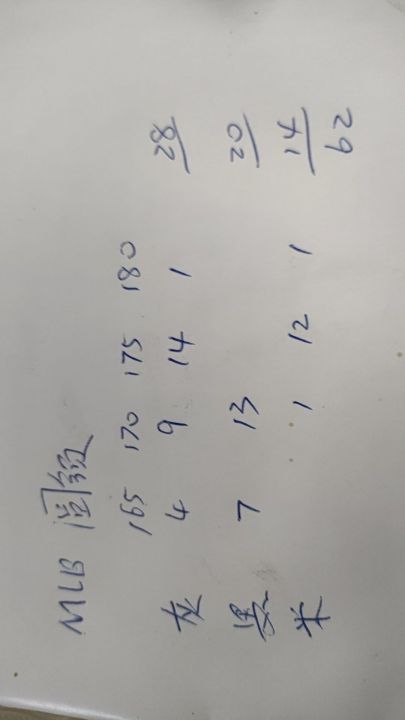 MLB 圆领
165 170 175 180
灰 4 9 14 1 28
7 13 20
米 1 12 1 14
62